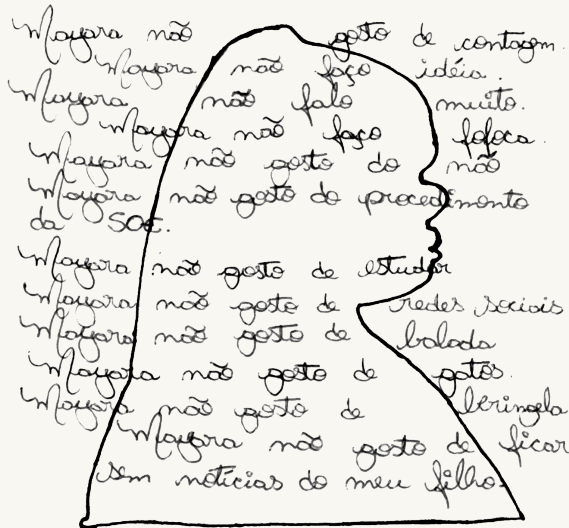 Mayara não gosto de contagem.
Mayara não faço idéia.
Mayara não falo muito.
Mayara não faço fofoca.
Mayara não gosto do não
Mayara não gosto do procedimento
da SOE.
Mayara não gosto de estudar
Mayara não gosto de redes sociais
Mayara não gosto de balada
Mayara não gosto de gatos.
Mayara não gosto de beringela
Mayara não gosto de ficar
sem notícias do meu filho.